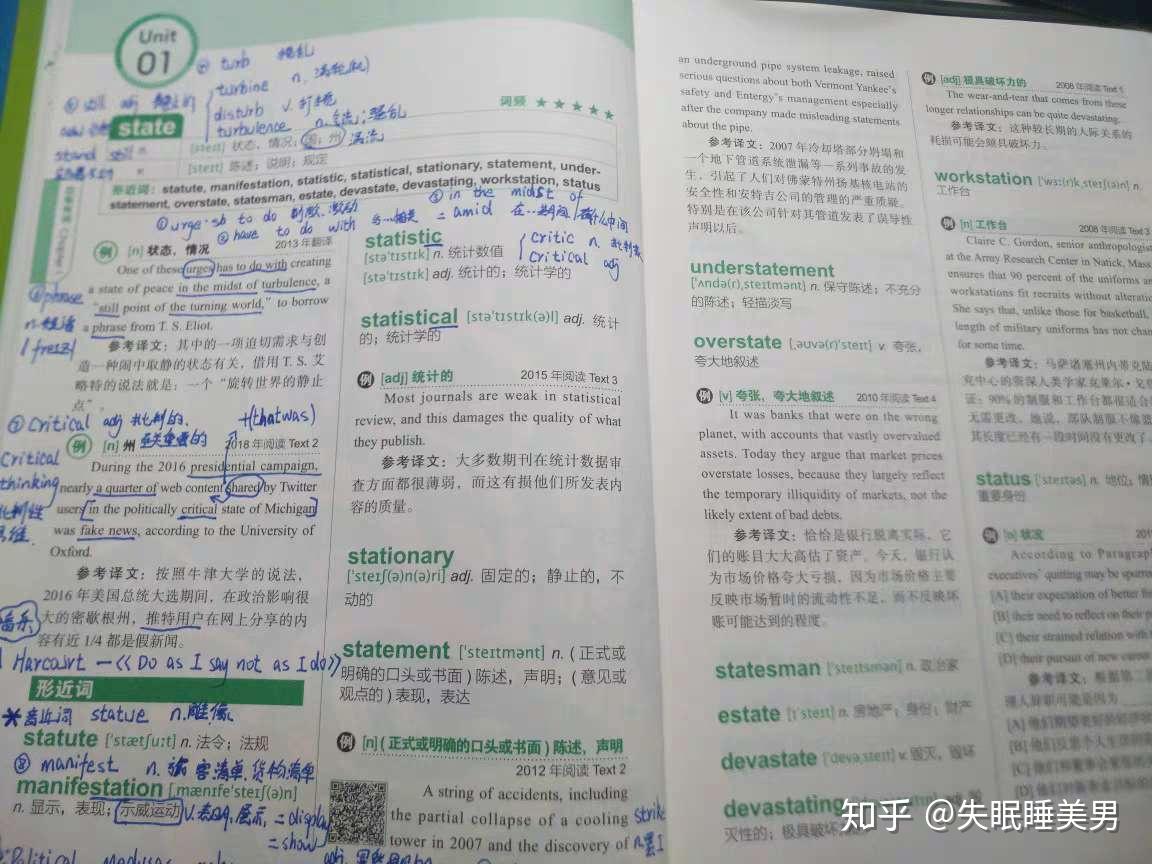 Unit
01
turb 扰乱
turbine n. 涡轮机
disturb v. 打扰
turbulence n. 气流；骚乱
涡流
still adj 静止的
stand still
词频 ★★★★★
state
[steɪt] 状态，情况；国；州
[steɪt] 陈述；说明；规定
形近词：statute, manifestation, statistic, statistical, stationary, statement, under-
statement, overstate, statesman, estate, devastate, devastating, workstation, status
①urge sb to do
②have to do with 与…相关
③in the midst of
= amid 在…期间
例 [n] 状态，情况 2013 年翻译
One of these urges has to do with creating
a state of peace in the midst of turbulence, a
“still point of the turning world,” to borrow
a phrase from T. S. Eliot.
phrase
n. 短语
/freɪz/
参考译文：其中的一项迫切需求与创
造一种闹中取静的状态有关，借用 T. S. 艾
略特的说法就是：一个“旋转世界的静止
点”。
critical adj 批判的.
至关重要的
+(that was)
例 [n] 州 2018 年阅读 Text 2
During the 2016 presidential campaign,
nearly a quarter of web content shared by Twitter
users in the politically critical state of Michigan
was fake news, according to the University of
Oxford.
Critical
thinking
批判性
思维
参考译文：按照牛津大学的说法，
2016 年美国总统大选期间，在政治影响很
大的密歇根州，推特用户在网上分享的内
容有近 1/4 都是假新闻。
音乐
Harcourt —《Do as I say not as I do》
形近词
*音近词 statue n.雕像
statute ['stætʃuːt] n. 法令；法规
⑧ manifest n. 旅客清单, 货物清单
manifestation [ˌmænɪfe'steɪʃ(ə)n]
n. 显示，表现；示威运动 v.表明, 展示, = display
= show
statistic
[stə'tɪstɪk] n. 统计数值
[stə'tɪstɪk] adj. 统计的；统计学的
critic n. 批判家
critical adj
statistical [stə'tɪstɪk(ə)l] adj. 统计
的；统计学的
例 [adj] 统计的 2015 年阅读 Text 3
Most journals are weak in statistical
review, and this damages the quality of what
they publish.
参考译文：大多数期刊在统计数据审
查方面都很薄弱，而这有损他们所发表内
容的质量。
stationary
['steɪʃ(ə)n(ə)ri] adj. 固定的；静止的，不
动的
statement ['steɪtmənt] n. ( 正式或
明确的口头或书面 ) 陈述，声明；( 意见或
观点的 ) 表现，表达
例 [n] ( 正式或明确的口头或书面 ) 陈述，声明
2012 年阅读 Text 2
A string of accidents, including
the partial collapse of a cooling
tower in 2007 and the discovery of
strike
n.罢工
an underground pipe system leakage, raised
serious questions about both Vermont Yankee's
safety and Entergy's management especially
after the company made misleading statements
about the pipe.
参考译文：2007 年冷却塔部分坍塌和
一个地下管道系统泄漏等一系列事故的发
生，引起了人们对佛蒙特州扬基核电站的
安全性和安特吉公司的管理的严重质疑，
特别是在该公司针对其管道发表了误导性
声明以后。
understatement
['ʌndə(r)ˌsteɪtmənt] n. 保守陈述；不充分
的陈述；轻描淡写
overstate [ˌəʊvə(r)'steɪt] v. 夸张，
夸大地叙述
例 [v] 夸张，夸大地叙述 2010 年阅读 Text 4
It was banks that were on the wrong
planet, with accounts that vastly overvalued
assets. Today they argue that market prices
overstate losses, because they largely reflect
the temporary illiquidity of markets, not the
likely extent of bad debts.
参考译文：恰恰是银行脱离实际，它
们的账目大大高估了资产。今天，银行认
为市场价格夸大亏损，因为市场价格主要
反映市场暂时的流动性不足，而不反映坏
账可能达到的程度。
statesman ['steɪtsmən] n. 政治家
estate [ɪ'steɪt] n. 房地产；身份；财产
devastate ['devəˌsteɪt] v. 毁灭，毁坏
devastating
灭性的；极具破坏
例 [adj] 极具破坏力的 2008 年阅读 Text 1
The wear-and-tear that comes from these
longer relationships can be quite devastating.
参考译文：这种较长期的人际关系的
耗损可能会颇具破坏力。
workstation ['wɜː(r)kˌsteɪʃ(ə)n] n.
工作台
例 [n] 工作台 2008 年阅读 Text 3
Claire C. Gordon, senior anthropologist
at the Army Research Center in Natick, Mass
ensures that 90 percent of the uniforms an
workstations fit recruits without alteratio
She says that, unlike those for basketball,
length of military uniforms has not chan
for some time.
参考译文：马萨诸塞州内蒂克陆
究中心的资深人类学家克莱尔·戈登
证：90%的制服和工作台都很适合
无需更改。她说，部队制服不像篮
其长度已经有一段时间没有更改了。
status ['steɪtəs] n. 地位；情
重要身份
例 [n] 状况 201
According to Paragraph
executives' quitting may be spurred
[A] their expectation of better fin
[B] their need to reflect on their p
[C] their strained relation with t
[D] their pursuit of new career
参考译文：根据第二
理人辞职可能是因为
知乎 @失眠睡美男